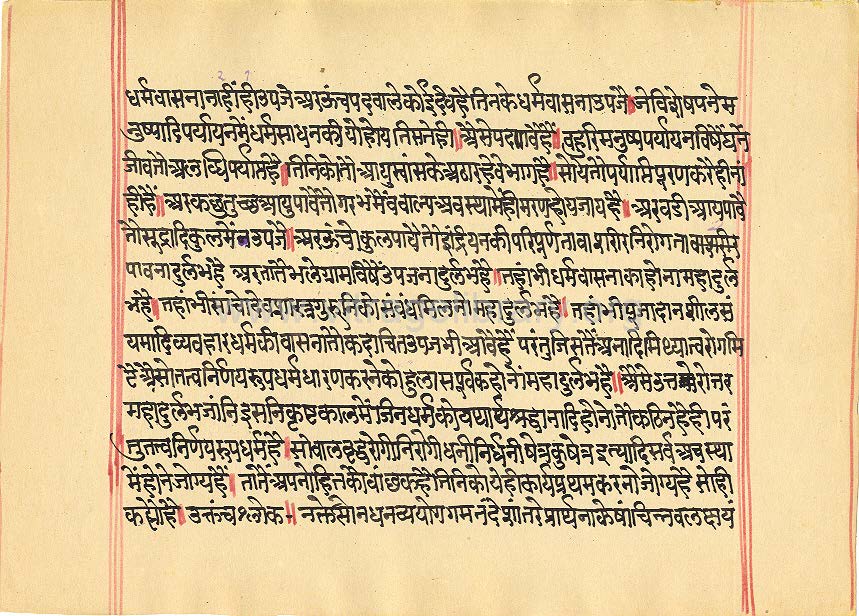 धर्मवासनानाहींहीउपजेअरऊंचपदवालेकोईहैवैहैतिनकेधर्मवासनाउपजै॥जेविशेषपनेम
नुष्यादिपर्यायनमेंधर्मसाधनकीयोहोयतिसतेही॥अैसेपदपावैहैं॥बहुरिमनुष्यपर्यायनविषैंघने
जीवतोअलब्धिपर्याप्तहै॥तिनिकातोआयुस्वांसकेअठारहवेभागहै॥सोयेतोपर्याप्तिपूरणकरैहीना
हीहैं॥अरकछुतुच्छआयुपावैंतोगरभमेंवबाल्यअवस्थामेंहीमरणहोयजायहै॥अरबडीआयुपावै
तोसूद्रादिकुलमेंउपजै॥अरऊंचोकुलपावैतोइंद्रियनकीपरिपूर्णतावाशरीरनिरोगता
पावनादुर्लभहै॥अरतातैंभलेग्रामविषैंउपजनादुर्लभहै॥तहांभीधर्मवासनाकाहोनामहादुर्ल
भहै॥तहांभीसांचोदेवशास्त्रगुरुनिकोसंबंधमिलनोमहादुर्लभहै॥तहाभीपूजादानशीलसं
यमादिव्यवहारधर्मकीवासनातोकदाचितउपजभीआवेहैं परंतुजिसतैंअनादिमिथ्यात्वरोगमि
टैंअैसोतत्वनिर्णयरूपधर्मधारणकरनेकोहुलासपूर्वकहोनांमहादुर्लभहै॥अैसेउत्तरोत्तर
महादुर्लभजांनिइसनिकृष्टकालमेंजिनधर्मकोयथार्थश्रद्धानादिहोनोतोकठिनहैहै॥परं
तुतत्वनिर्णयरूपधर्महै॥सोबालवृद्धरोगीनिरोगीधनीनिर्धनीषेत्रकुषेत्रइत्यादिसर्वअवस्था
मेंहोनेजोग्यहै॥तातैंअपनोहितकोवांछकहैतिनिकोयेहीकार्यप्रथमकरनोजोग्यहैसोही
कह्योहै॥उक्तंचश्लोक-॥नक्लेसोनधनव्ययोनगमनंदेशांतरेप्रार्थनाकेषांचिन्नबलक्षयं